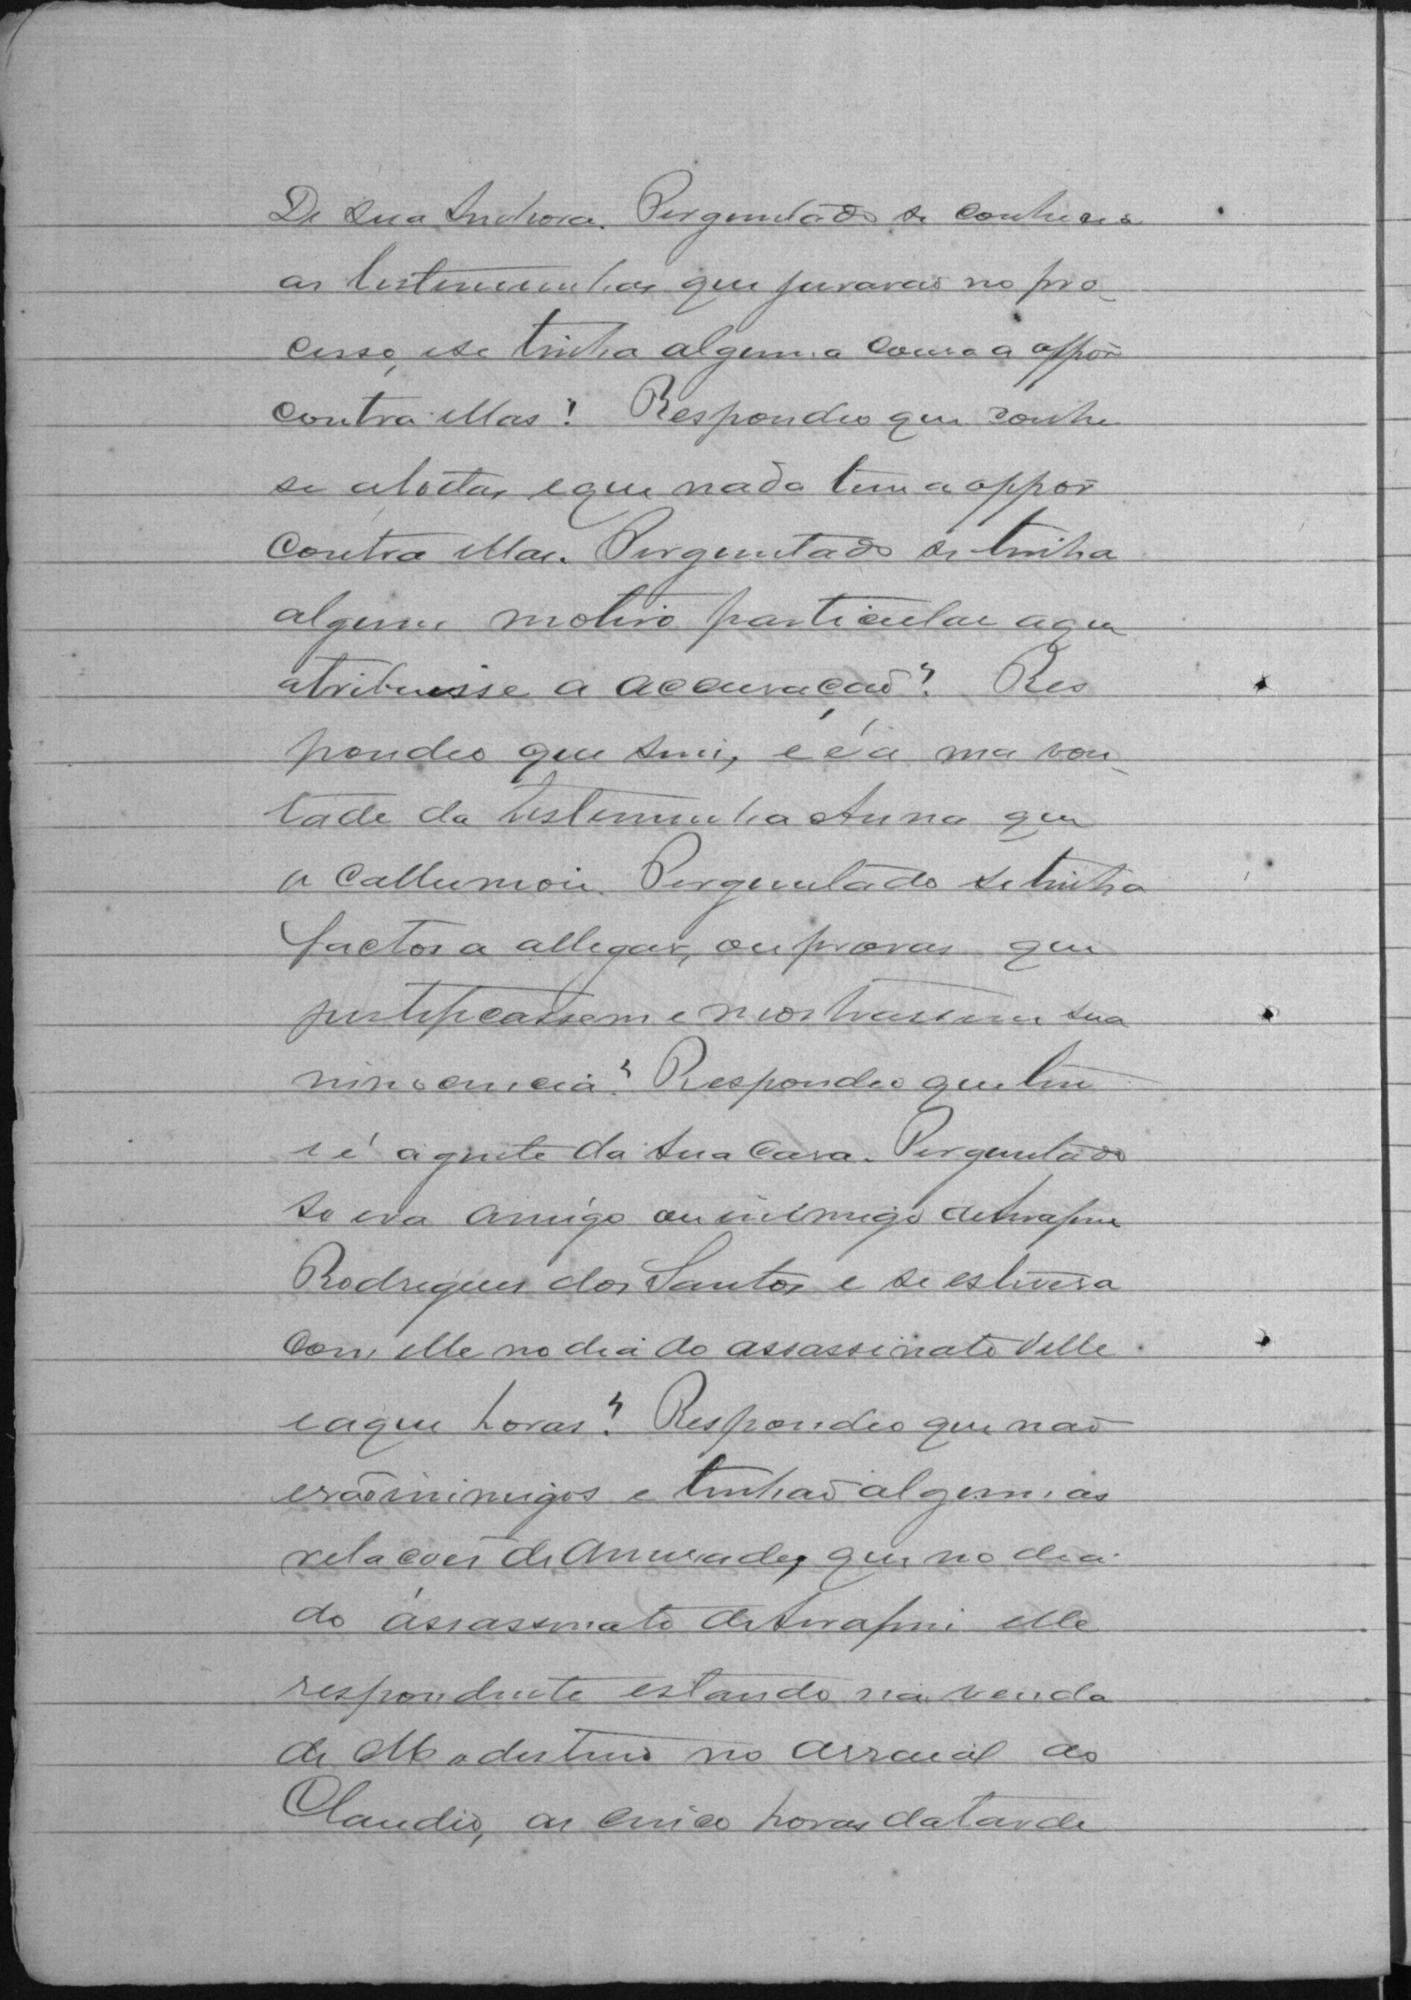 De sua Senhora. Perguntado se conhecia
as testemunhas que jurarão no pro-
cesso, e se tinha alguma cousa a oppôr
contra ellas? Respondeo que conhe
se a todas e que nada tem a oppôr
contra ellas. Perguntado se tinha
algum motivo particular a que
atribuisse a accusação? Res
pondeo que sim, e é a ma von-
tade da testemunha Anna que
o callumnia. Perguntado se tinha
factos a allegar, ou provas que
justificassem e mostrassem sua
ninocencia? Respondeo que tem
e é a gente da sua casa. Perguntado
se era amigo ou inimigo de Serafim
Rodrigues dos Santos e se estivera
com elle no dia do assassinato delle
e a que horas? Respondeo que não
erão inimigos e tinhão algumas
relacoes de amisade, que no dia
do assassinato de Serafim elle
respondente estando na venda
de Modestino no arraial do
Claudio, as cinco horas da tarde